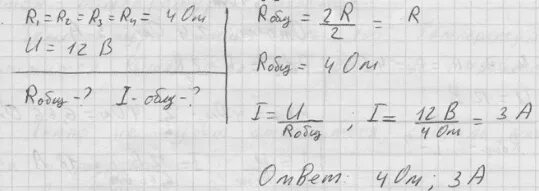 R₁ = R₂ = R₃ = R₄ = 4 Ом
U = 12 В
Rобщ -? I - общ -?
Rобщ = 2R/2 = R
Rобщ = 4 Ом
I = U/Rобщ ; I = 12 В/4 Ом = 3 А
Ответ: 4 Ом; 3 А